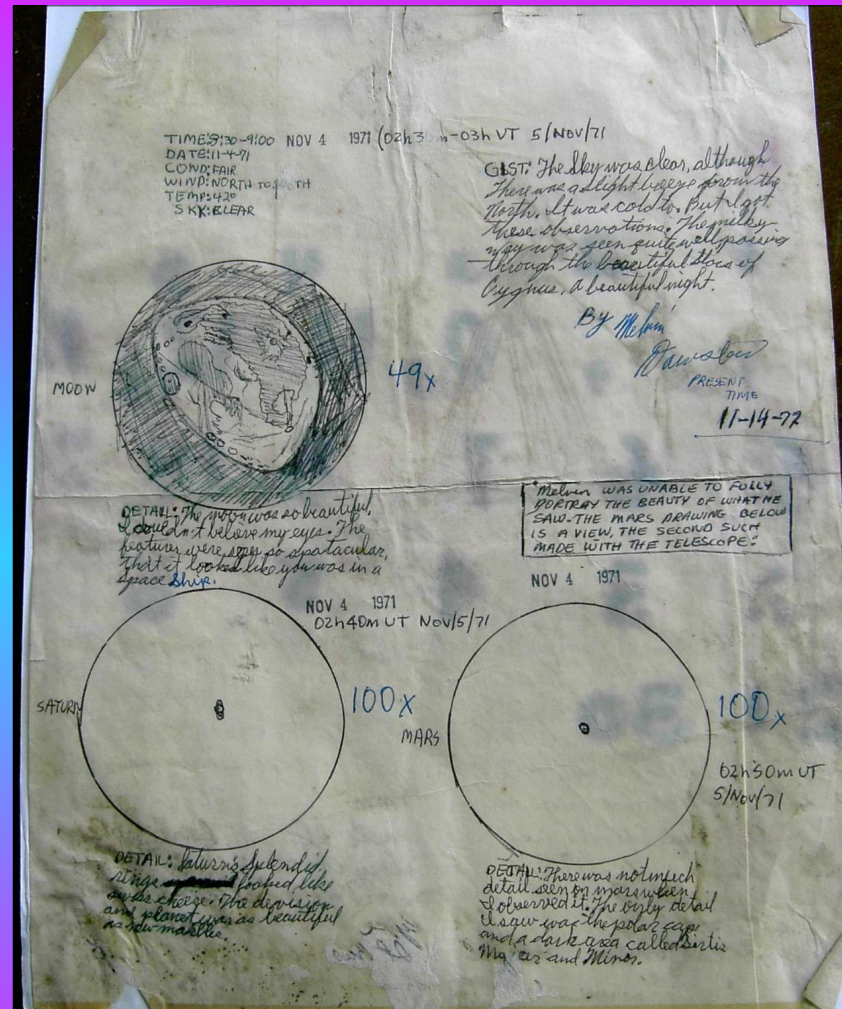 TIME: 8:30-9:00 NOV 4 1971 (02h 3 -03h UT 5/NOV/71
DATE: 11-4-71
COND: FAIR
WIND: NORTH TO TH
TEMP: 42°
SKY: CLEAR
GIST: The Sky was clear, although
There was a slight breeze from the
North. It was cold to. But I got
these observations. The milky
way was seen quite well passing
through the beautiful stars of
Cygnus, a beautiful night.
By Melvin
PRESENT
TIME
11-14-72
MOON
49x
DETAIL: The moon was so beautiful,
I couldn't beleive my eyes. The
features were seen so spatacular,
That it looked like you was in a
space Ship.
"Melvin WAS UNABLE TO FULLY
PORTRAY THE BEAUTY OF WHAT HE
SAW. THE MARS DRAWING BELOW
IS A VIEW, THE SECOND SUCH
MADE WITH THE TELESCOPE."
NOV 4 1971
02h40m UT Nov/5/71
SATURN
100x
DETAIL: Saturn's Splendid
rings looked like
swiss cheese. The devision
and planet was as beautiful
as new marble.
NOV 4 1971
MARS
100x
02h50m UT
5/Nov/71
DETAIL: There was not much
detail seen on mars when
I observed it. The only detail
I saw was the polar cap
and a dark area called Sirtis
and Minor.